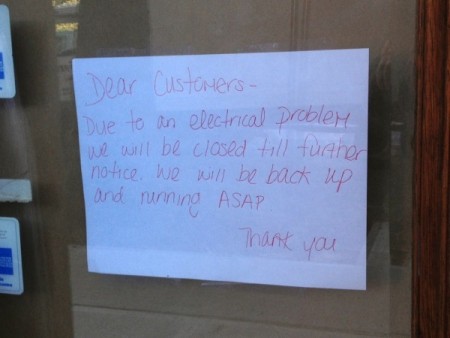 Dear Customers-
Due to an electrical problem
we will be closed till further
notice. We will be back up
and running ASAP
Thank you